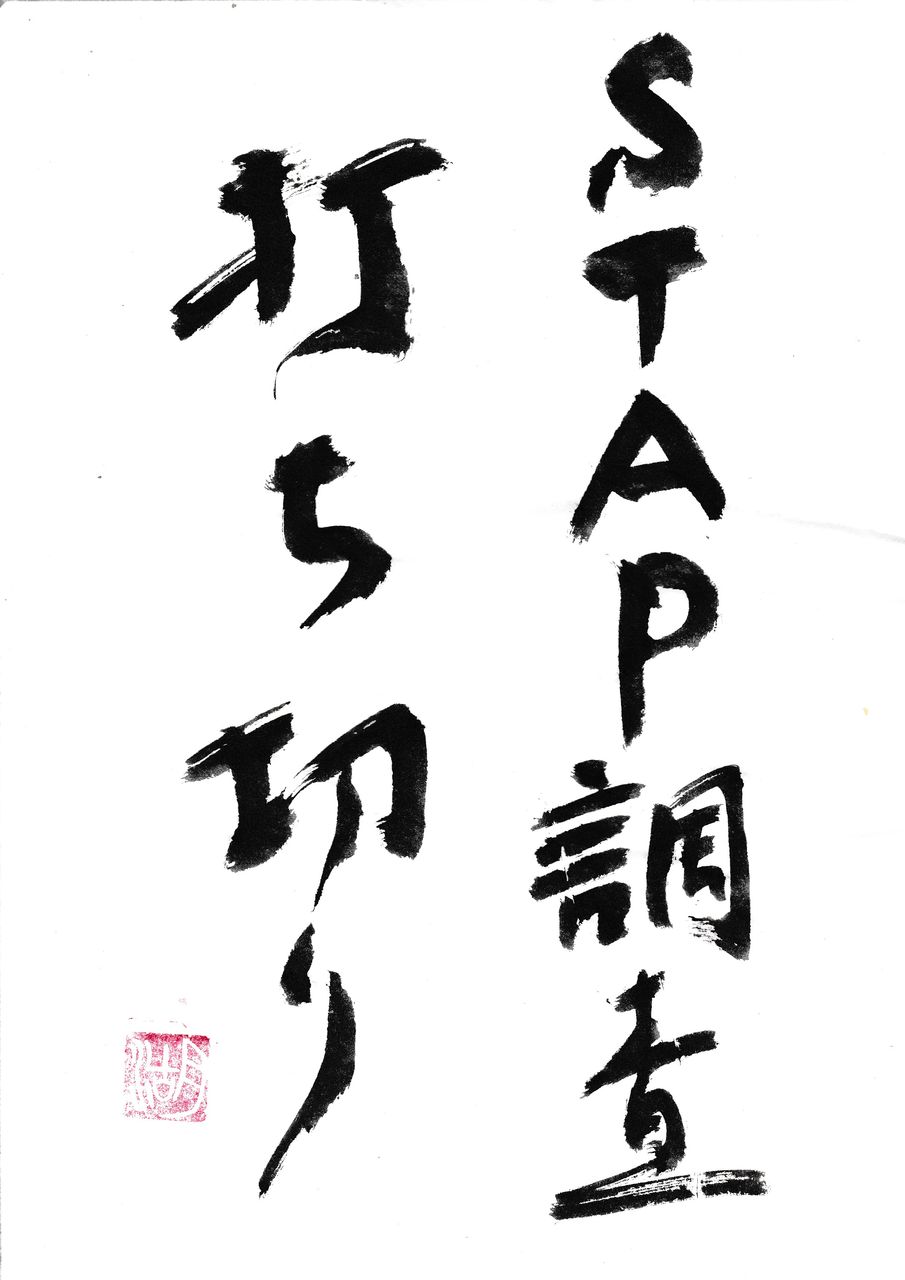 STAP調査
打ち切り